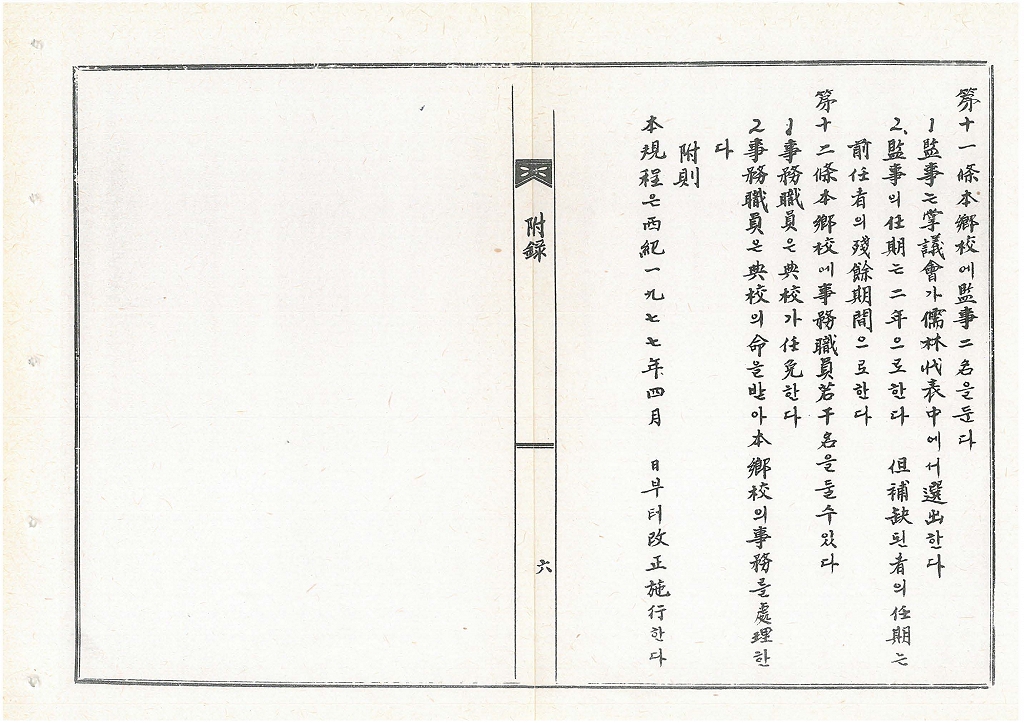 第十一條 本鄕校에 監事二名을 둔다
1 監事는 掌議會가 儒林代表中에서 選出한다
2、監事의 任期는 二年으로한다 但 補缺된 者의 任期는
前任者의 殘餘期間으로한다
第十二條 本鄕校에 事務職員若干名을 둘수있다
1 事務職員은 典校가 任免한다
2 事務職員은 典校의 命을 받아 本鄕校의 事務를 處理한
다
附則
本規程은 西紀一九七七年四月 日부터 改正施行한다
附録
六